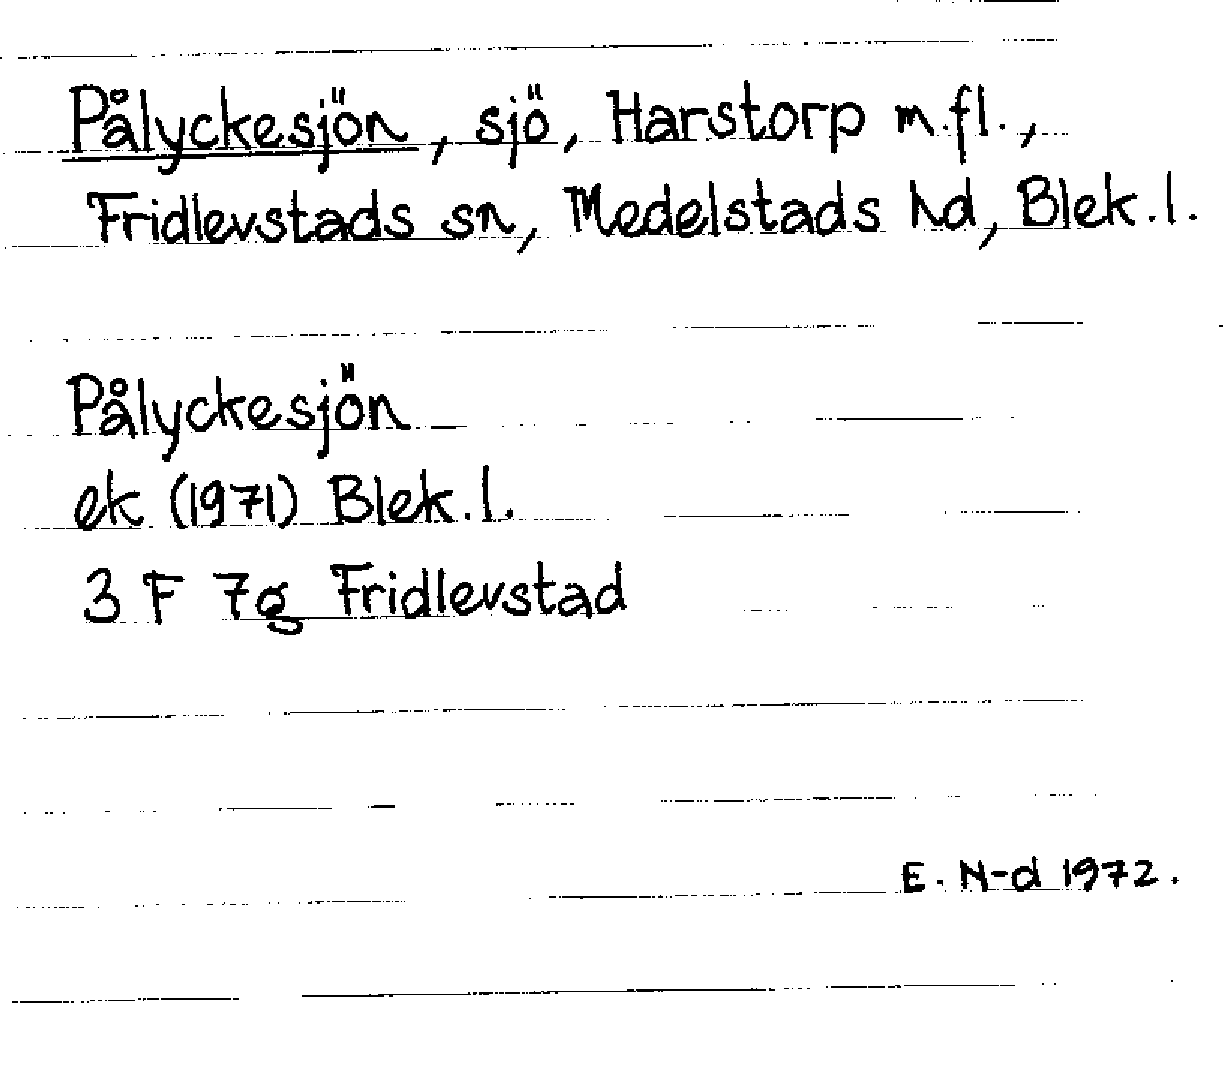 Pålyckesjön, sjö, Harstorp m.fl.,
Fridlevstads sn, Medelstads hd, Blek.l.
Pålyckesjön
ek (1971) Blek.l.
3 F 7g Fridlevstad
E. N-d 1972.